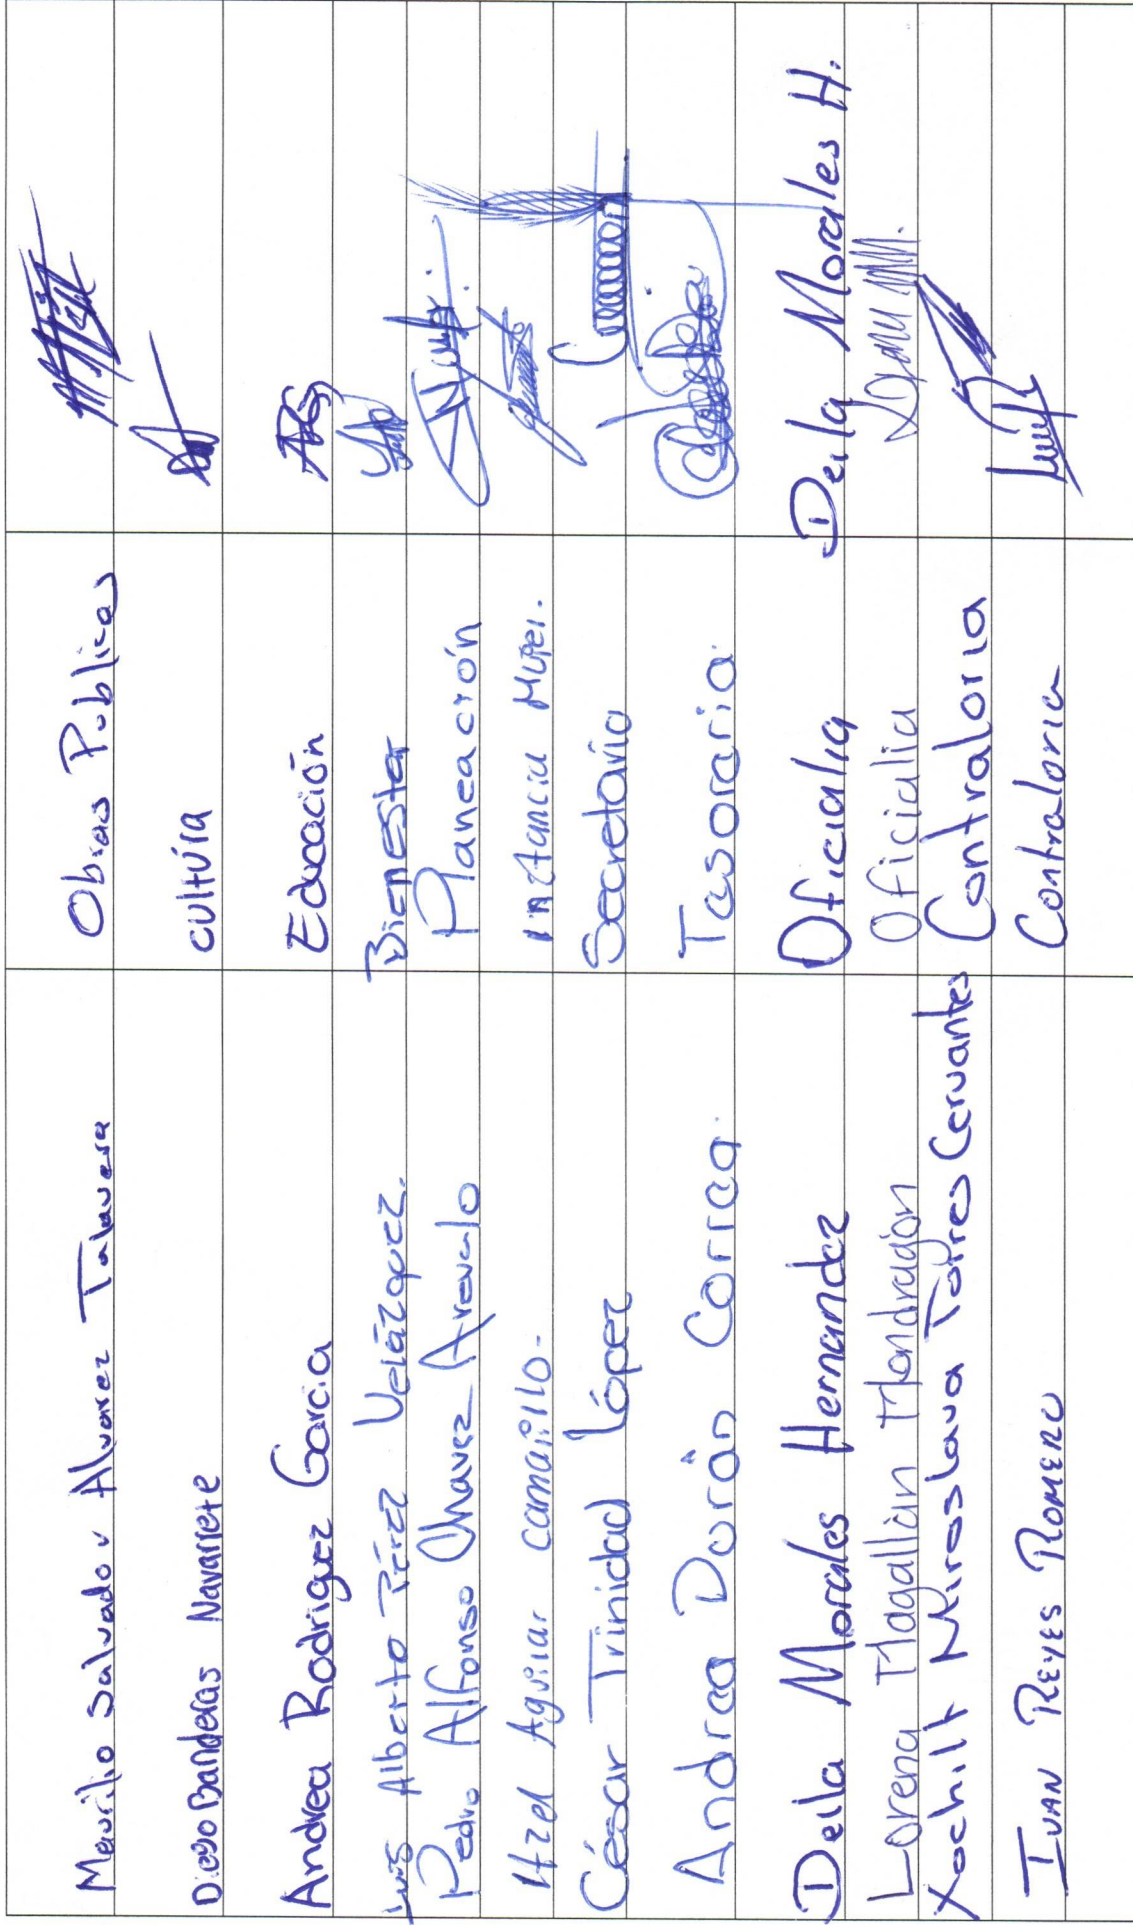 Maurilio Salvador Alvarez Talavera Obras Publicas
Diego Banderas Navarrete cultura
Andrea Rodriguez Garcia Educación ARG
Luis Alberto Pérez Velázquez. Bienestar
Pedro Alfonso Chavez Arevalo Planeación
Itzel Aguilar camarillo. inztancia Mujer.
César Trinidad López Secretario
Andrea Dorán Correa. Tesoreria.
Deila Morales Hernandez Oficialia Deila Morales H.
Lorena Magallan Mondragon Oficialia
Xochilt Miroslava Torres Cervantes Contraloria
IVAN REYES ROMERO Contraloria